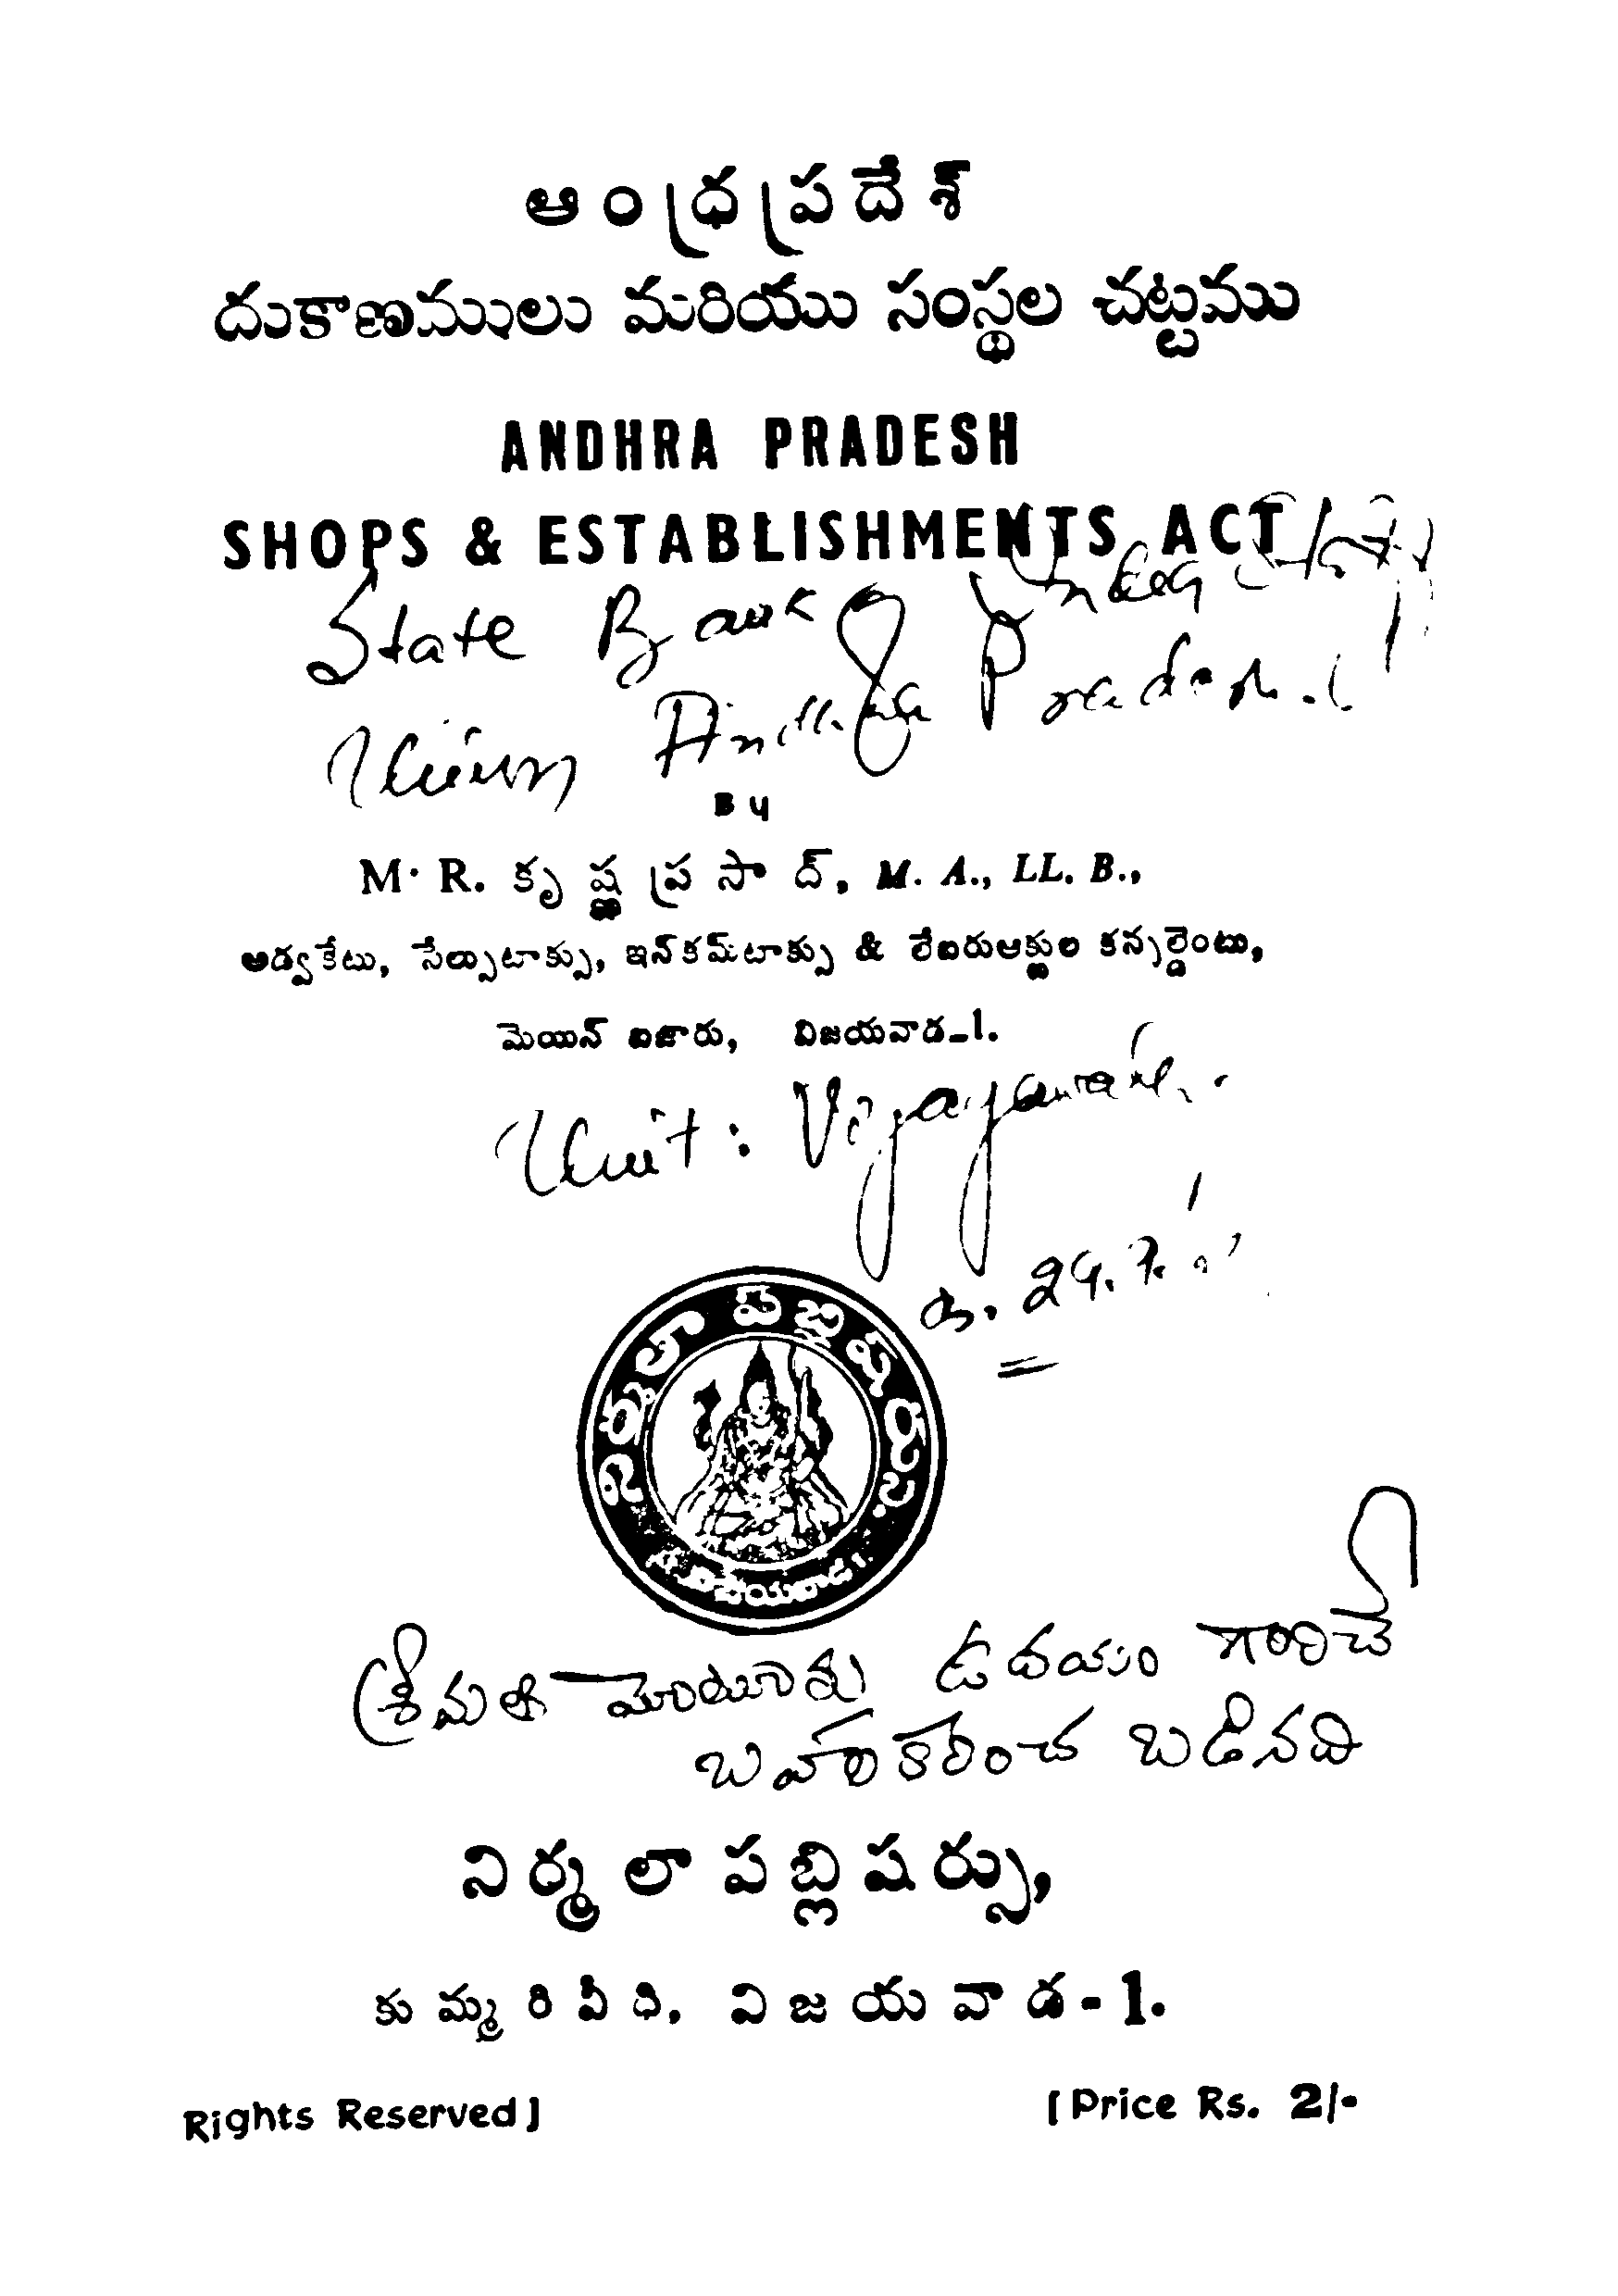 ఆంధ్రప్రదేశ్
దుకాణములు మరియు సంస్థల చట్టము
ANDHRA PRADESH
SHOPS & ESTABLISHMENTS ACT
State Bank
Union Andhra Pradesh.
By
M. R. కృష్ణప్రసాద్, M. A., LL. B.,
అడ్వకేటు, సేల్సుటాక్సు, ఇన్‌కమ్‌టాక్సు & లేబరుఆక్టుల కన్సల్టెంటు,
మెయిన్ బజారు, విజయవాడ-1.
Unit: Vijayawada.
నిర్మలా పబ్లిషర్సు
విజయవాడ-1.
శ్రీమతి ఉదయం గారిచే
బహూకరించ బడినది
నిర్మలా పబ్లిషర్సు,
కుమ్మరివీధి, విజయవాడ-1.
Rights Reserved] [Price Rs. 2/-